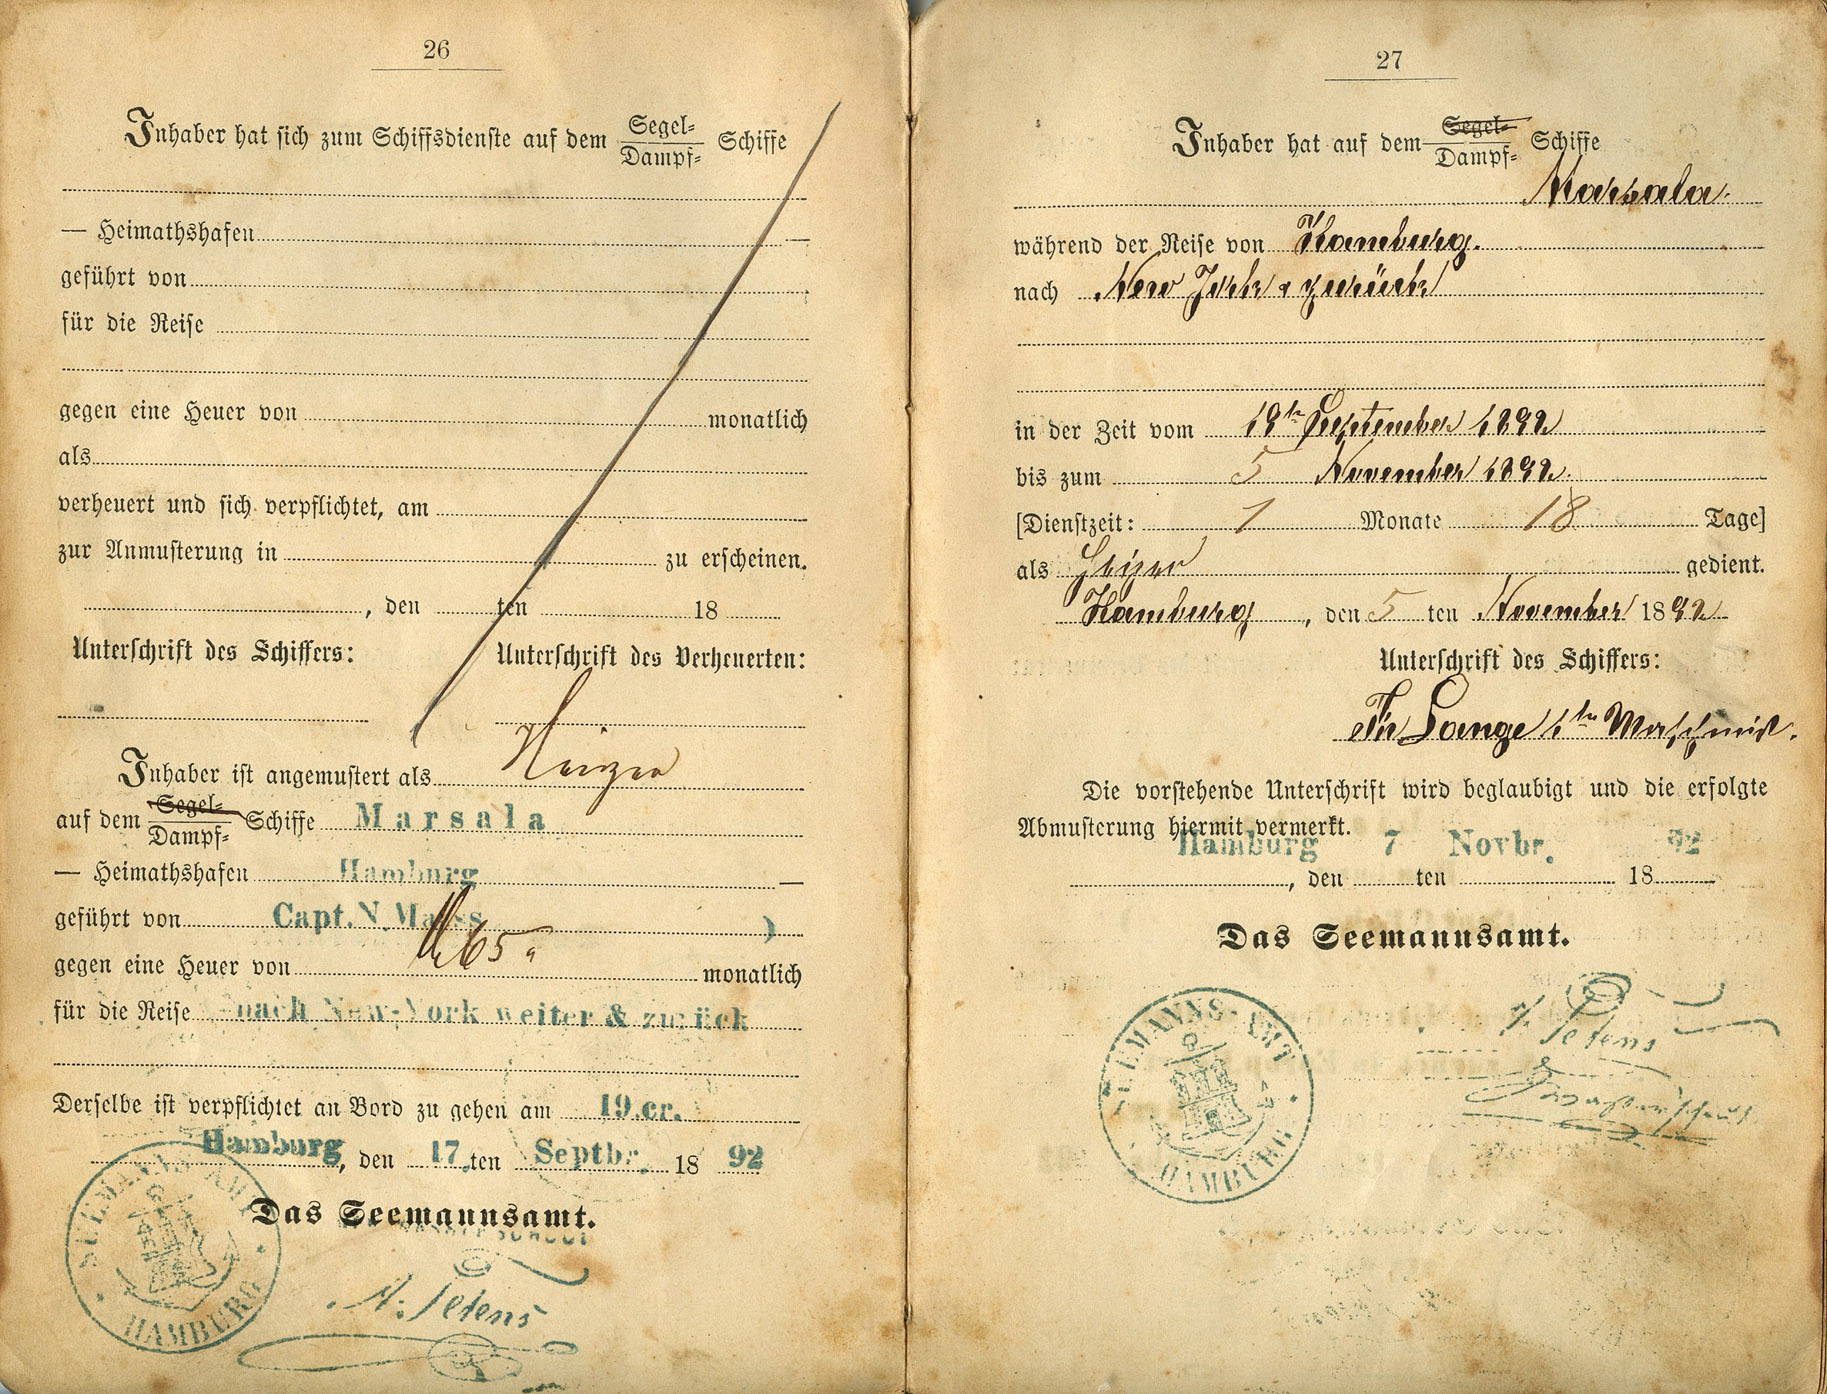 26
Inhaber hat sich zum Schiffsdienste auf dem Segel-
Dampf- Schiffe
— Heimathshafen —
geführt von
für die Reise
gegen eine Heuer von monatlich
als
verheuert und sich verpflichtet, am
zur Anmusterung in zu erscheinen.
, den ten 18
Unterschrift des Schiffers: Unterschrift des Verheuerten:
Inhaber ist angemustert als Heizer
auf dem Segel-
Dampf- Schiffe Marsala
— Heimathshafen Hamburg —
geführt von Capt. N. Maass
gegen eine Heuer von 65 monatlich
für die Reise nach New-York weiter & zurück
Derselbe ist verpflichtet an Bord zu gehen am 19. cr.
Hamburg, den 17. ten Septbr. 18 92
Das Seemannsamt.
SEEMANNS-AMT
HAMBURG
Petens
27
Inhaber hat auf dem Segel-
Dampf- Schiffe
Marsala.
während der Reise von Hamburg.
nach New York & zurück
in der Zeit vom 19ten September 1892
bis zum 5 November 1892.
[Dienstzeit: 1 Monate 18 Tage]
als Heizer gedient.
Hamburg, den 5 ten November 1892
Unterschrift des Schiffers:
Lange 1ter Maschinist.
Die vorstehende Unterschrift wird beglaubigt und die erfolgte
Abmusterung hiermit vermerkt.
Hamburg 7 Novbr. 92
, den ten 18
Das Seemannsamt.
SEEMANNS-AMT
HAMBURG
Petens